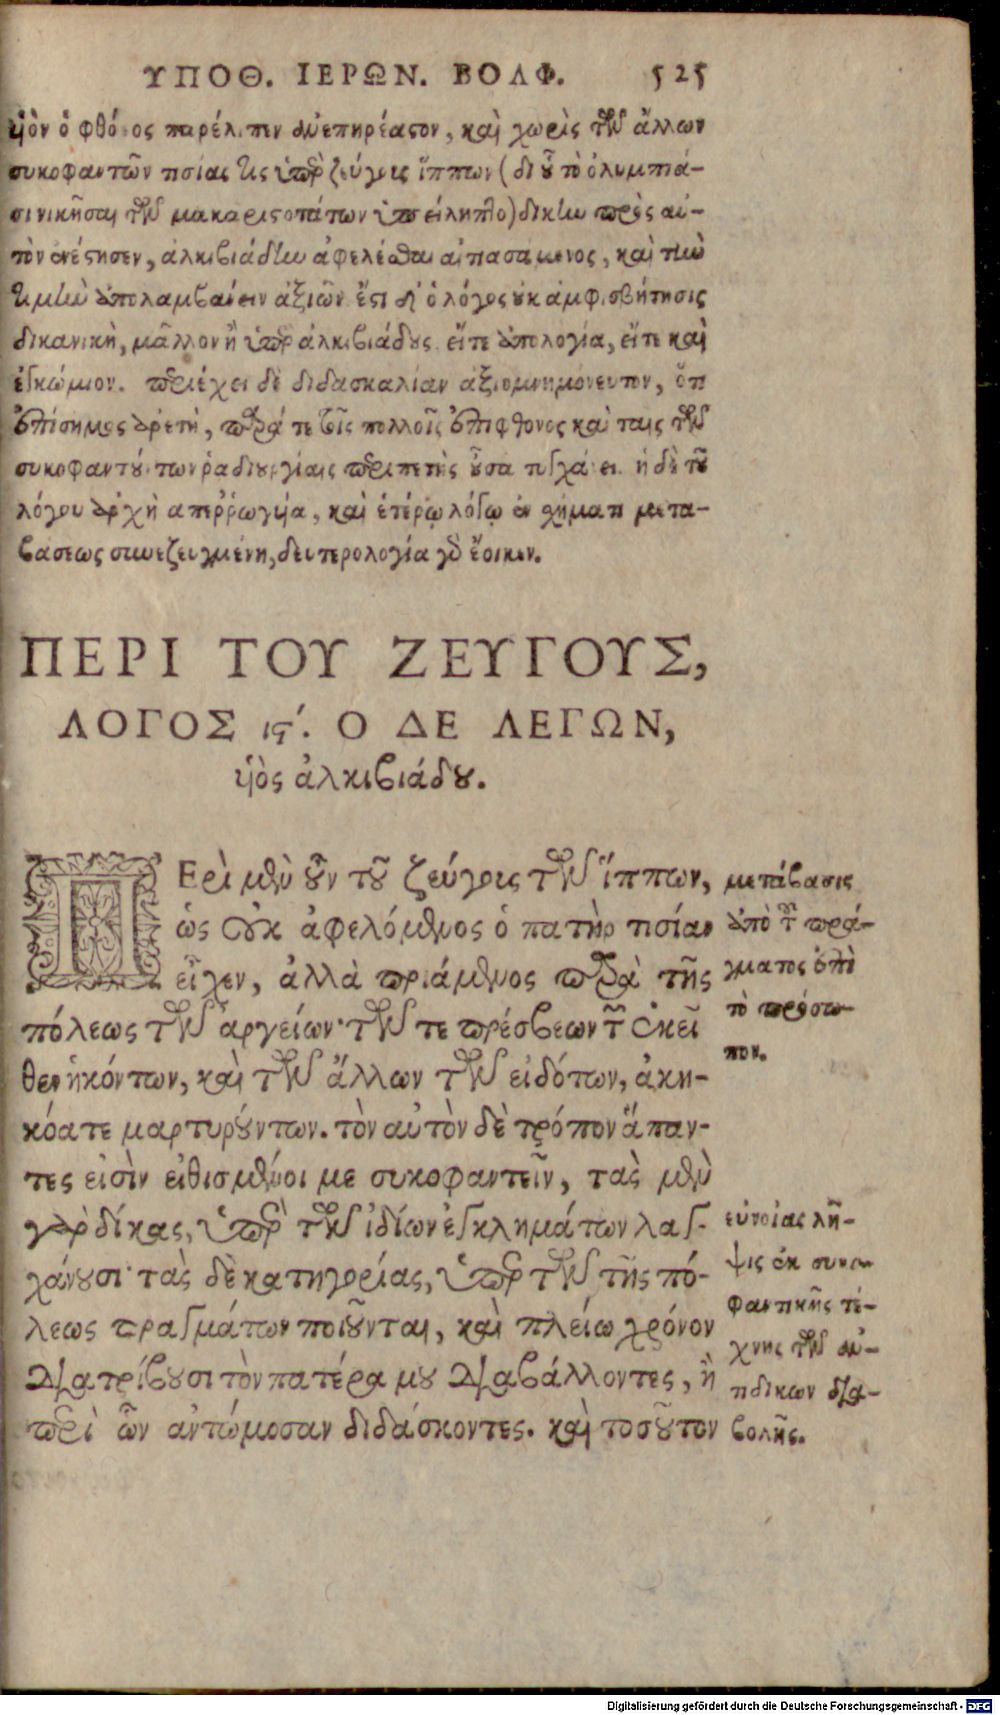 ΥΠΟΘ. ΙΕΡΩΝ. ΒΟΛΦ. 525
υἱὸν ὁ φθόνος παρέλιπεν ἀνεπηρέαστον, καὶ χωρὶς τῶν ἄλλων
συκοφαντῶν τισίας τις ὑπὲρ ζεύγους ἵππων (δι' οὗ τὸ ὀλυμπιά-
σι νικῆσαι τῶν μακαριστοτάτων ὑπείληπτο) δίκην πρὸς αὐ-
τὸν ἀνέστησεν, ἀλκιβιάδην ἀφελέσθαι αἰτιασάμενος, καὶ τὴν
τιμὴν ἀπολαμβάνειν ἀξιῶν. ἔστι δ' ὁ λόγος οὐκ ἀμφισβήτησις
δικανικὴ, μᾶλλον ἢ ὑπὲρ ἀλκιβιάδους εἴτε ἀπολογία, εἴτε καὶ
ἐγκώμιον. περιέχει δὲ διδασκαλίαν ἀξιομνημόνευτον, ὅτι
ἐπίσημος ἀρετὴ, παρά τε τοῖς πολλοῖς ἐπίφθονος καὶ ταῖς τῶν
συκοφαντούντων ῥᾳδιουργίαις περιπετὴς οὖσα τυγχάνει. ἡ δὲ τοῦ
λόγου ἀρχὴ ἀπερρωγυῖα, καὶ ἑτέρῳ λόγῳ ἐν σχήματι μετα-
βάσεως συνεζευγμένη, δευτερολογία γὰρ ἔοικεν.
ΠΕΡΙ ΤΟΥ ΖΕΥΓΟΥΣ,
ΛΟΓΟΣ ιϛ΄. Ο ΔΕ ΛΕΓΩΝ,
υἱὸς ἀλκιβιάδου.
ΠΕρὶ μὲν οὖν τοῦ ζεύγους τῶν ἵππων,
ὡς οὐκ ἀφελόμενος ὁ πατὴρ τισίαν
εἶχεν, ἀλλὰ πριάμενος παρὰ τῆς
πόλεως τῶν ἀργείων· τῶν τε πρέσβεων τῶν ἐκεῖ
θεν ἡκόντων, καὶ τῶν ἄλλων τῶν εἰδότων, ἀκη-
κόατε μαρτυρούντων. τὸν αὐτὸν δὲ τρόπον ἅπαν-
τες εἰσὶν εἰθισμένοι με συκοφαντεῖν, τὰς μὲν
γὰρ δίκας, ὑπὲρ τῶν ἰδίων ἐγκλημάτων λαγ-
χάνουσι· τὰς δὲ κατηγορίας, ὑπὲρ τῶν τῆς πό-
λεως πραγμάτων ποιοῦνται, καὶ πλείω χρόνον
διατρίβουσι τὸν πατέρα μου διαβάλλοντες, ἢ
περὶ ὧν ἀντώμοσαν διδάσκοντες. καὶ τοσοῦτον
μετάβασις
ἀπὸ τοῦ πρά-
γματος ἐπὶ
τὸ πρόσω-
πον.
εὐνοίας λῆ-
ψις ἐκ συκο-
φαντικῆς τέ-
χνης τῶν ἀν-
τιδίκων δια-
βολῆς.
Digitalisierung gefördert durch die Deutsche Forschungsgemeinschaft - DFG